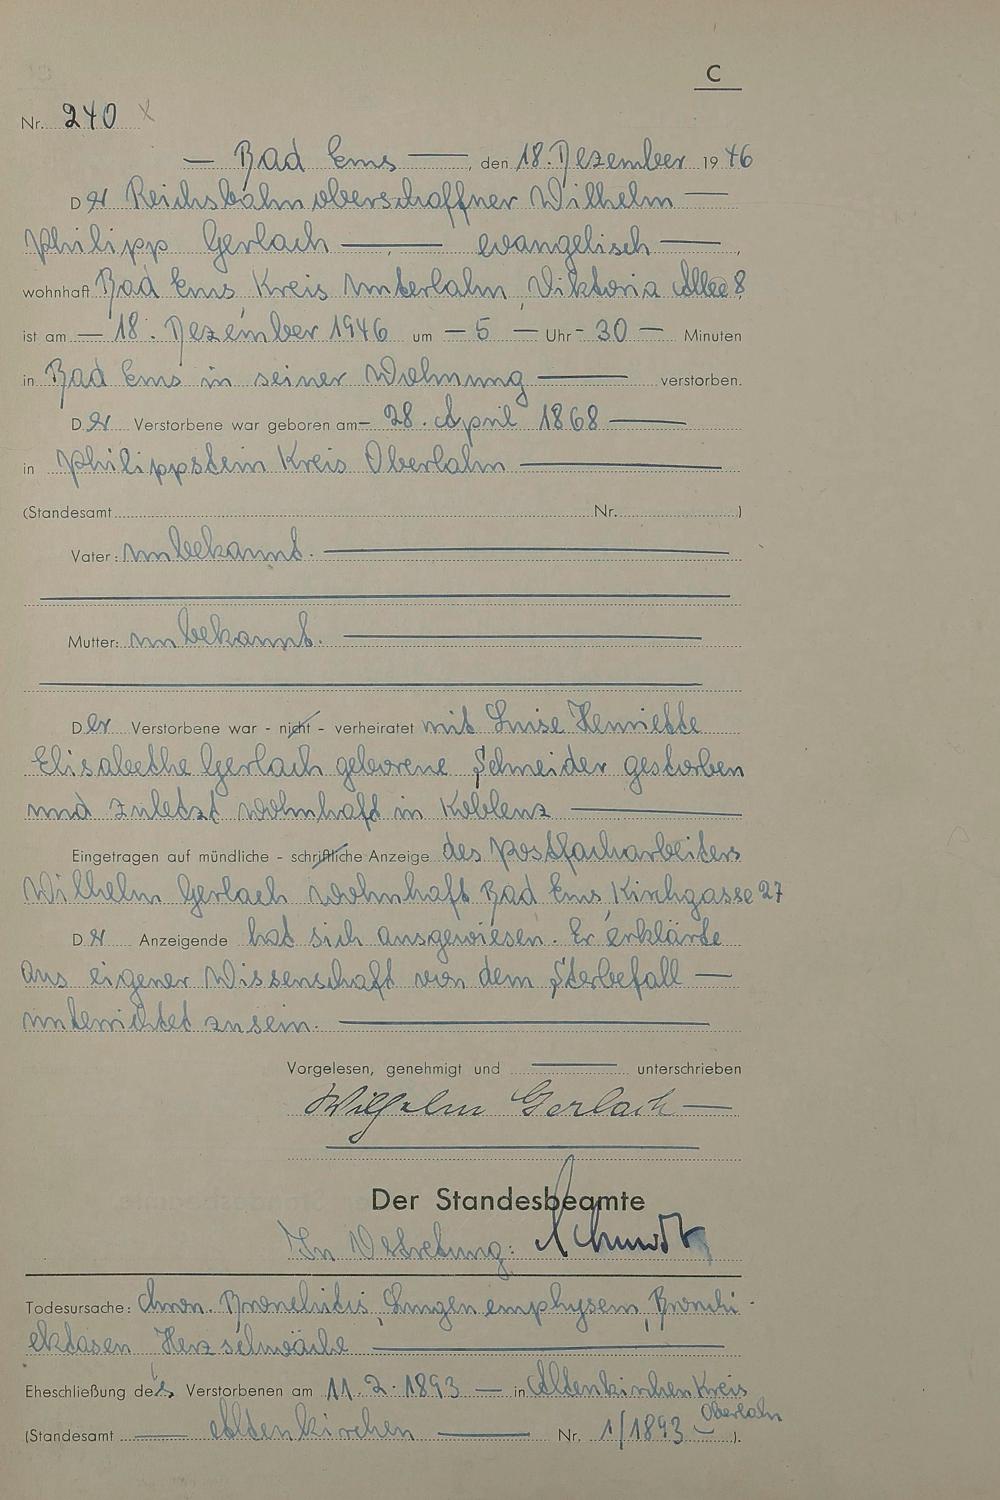 C
Nr. 240
— Bad Ems —, den 18. Dezember 1946
Der Reichsbahnoberschaffner Wilhelm —
Philipp Gerlach — evangelisch —,
wohnhaft Bad Ems, Kreis Unterlahn, Viktoria Allee 8
ist am — 18. Dezember 1946 um — 5 — Uhr - 30 — Minuten
in Bad Ems in seiner Wohnung — verstorben.
Der Verstorbene war geboren am — 28. April 1868 —
in Philippstein Kreis Oberlahn —
(Standesamt Nr. )
Vater: unbekannt. —
Mutter: unbekannt. —
Der Verstorbene war - nicht - verheiratet mit Luise Henriette
Elisabethe Gerlach geborene Schneider gestorben
und zuletzt wohnhaft in Koblenz —
Eingetragen auf mündliche - schriftliche Anzeige des Postfacharbeiters
Wilhelm Gerlach wohnhaft Bad Ems, Kirchgasse 27
Der Anzeigende hat sich ausgewiesen. Er erklärte
aus eigener Wissenschaft von dem Sterbefall —
unterrichtet zu sein. —
Vorgelesen, genehmigt und — unterschrieben
Wilhelm Gerlach —
Der Standesbeamte
In Vertretung: Schmidt
Todesursache: Chron. Bronchitis, Lungenemphysem, Bronchi-
ektasen Herzschwäche —
Eheschließung des Verstorbenen am 11.2.1893 — in Altenkirchen Kreis
Oberlahn
(Standesamt — Altenkirchen — Nr. 1/1893 — ).